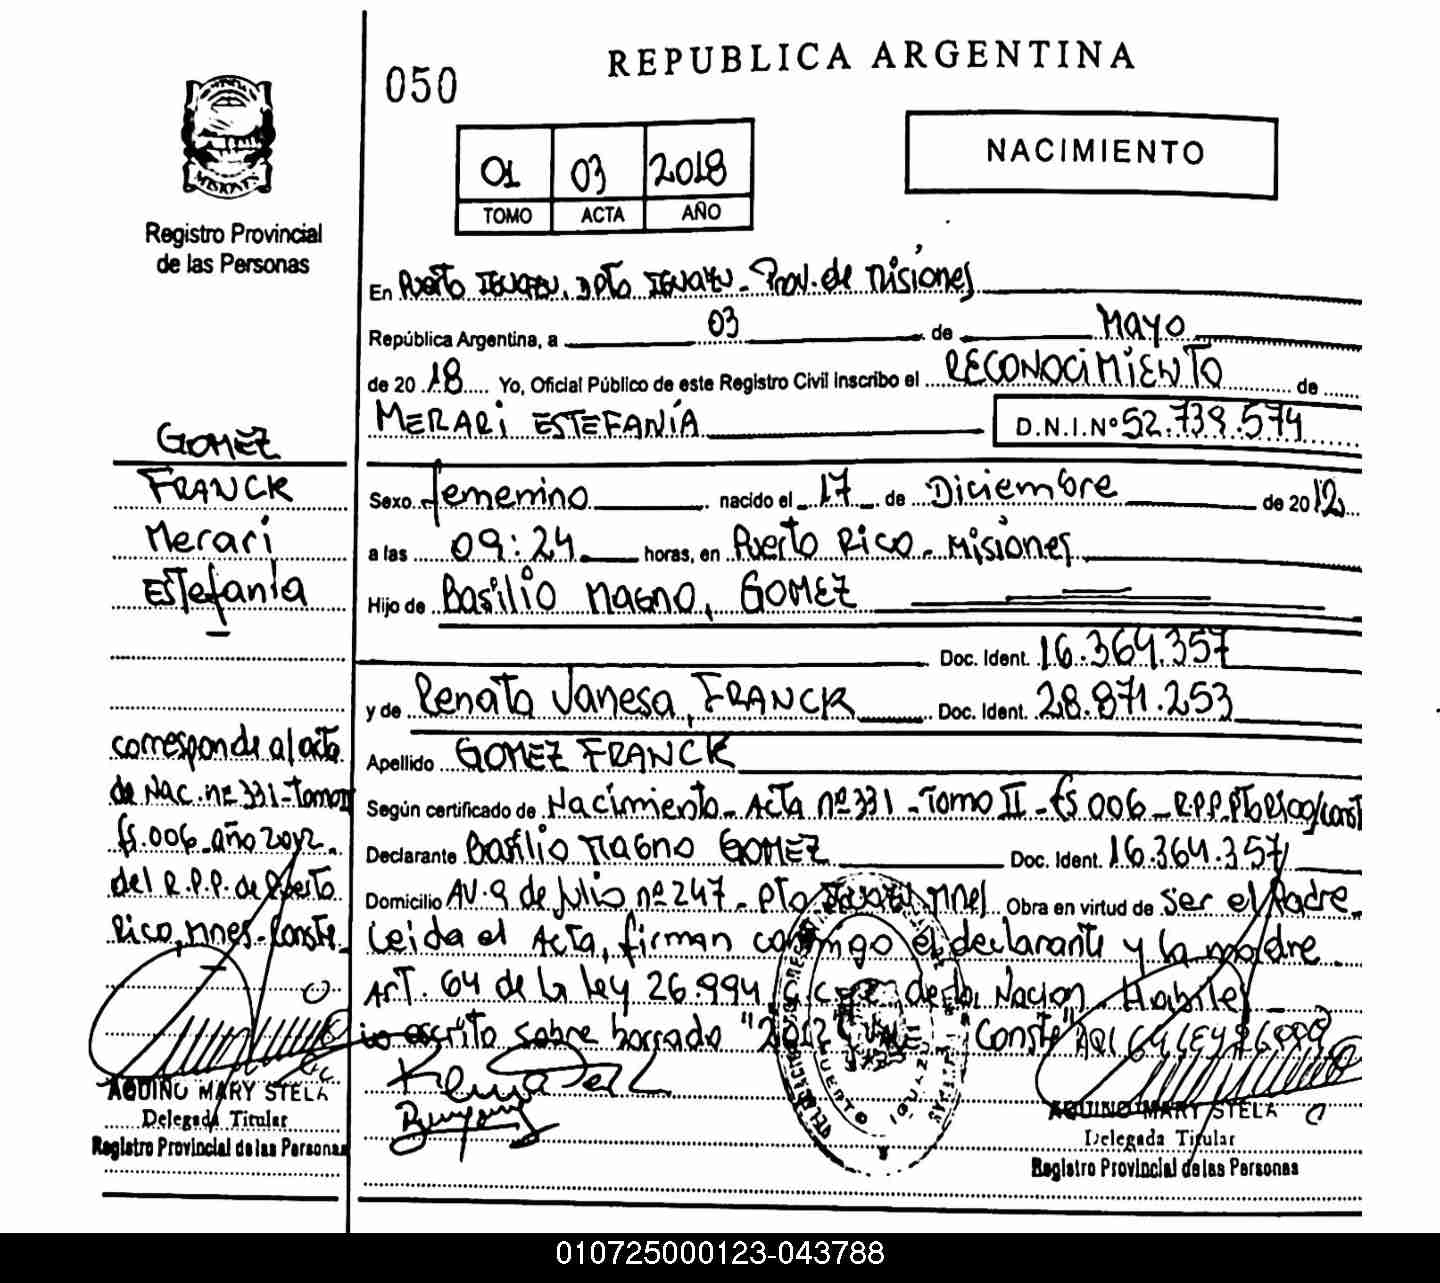 REPUBLICA ARGENTINA
050
NACIMIENTO
01 03 2018
TOMO ACTA AÑO
MISIONES
Registro Provincial
de las Personas
En Puerto IGUAZU, Dpto IGUAZU - Prov. de Misiones
República Argentina, a 03 de Mayo
de 2018 Yo, Oficial Público de este Registro Civil inscribo el RECONOCIMIENTO de
MERARI ESTEFANÍA D.N.I.Nº 52.739.574
GOMEZ
FRANCK
Merari
Estefanía
Sexo femenino nacido el 17 de Diciembre de 2012
a las 09:24 horas, en Puerto Rico - Misiones
Hijo de Basilio Magno, GOMEZ
Doc. Ident. 16.364.357
y de Renata Vanesa, FRANCK Doc. Ident. 28.871.253
Apellido GOMEZ FRANCK
corresponde al acta
de Nac. nº 331 - Tomo II
fs. 006 - año 2012 -
del R.P.P. de Puerto
Rico, Mnes - Conste -
Según certificado de Nacimiento - Acta nº 331 - Tomo II - fs 006 - R.P.P. Pto Rico
Declarante Basilio Magno GOMEZ Doc. Ident. 16.364.357
Domicilio AV. 9 de Julio nº 247 - Pto IGUAZU, Mnes Obra en virtud de Ser el Padre -
Leida el Acta, firman conmigo el declarante y la madre -
Art. 64 de la ley 26.994 de la Nacion -
lo escrito sobre borrado "2012" Conste
AQUINO MARY STELA
Delegada Titular
Registro Provincial de las Personas
AQUINO MARY STELA
Delegada Titular
Registro Provincial de las Personas
010725000123-043788